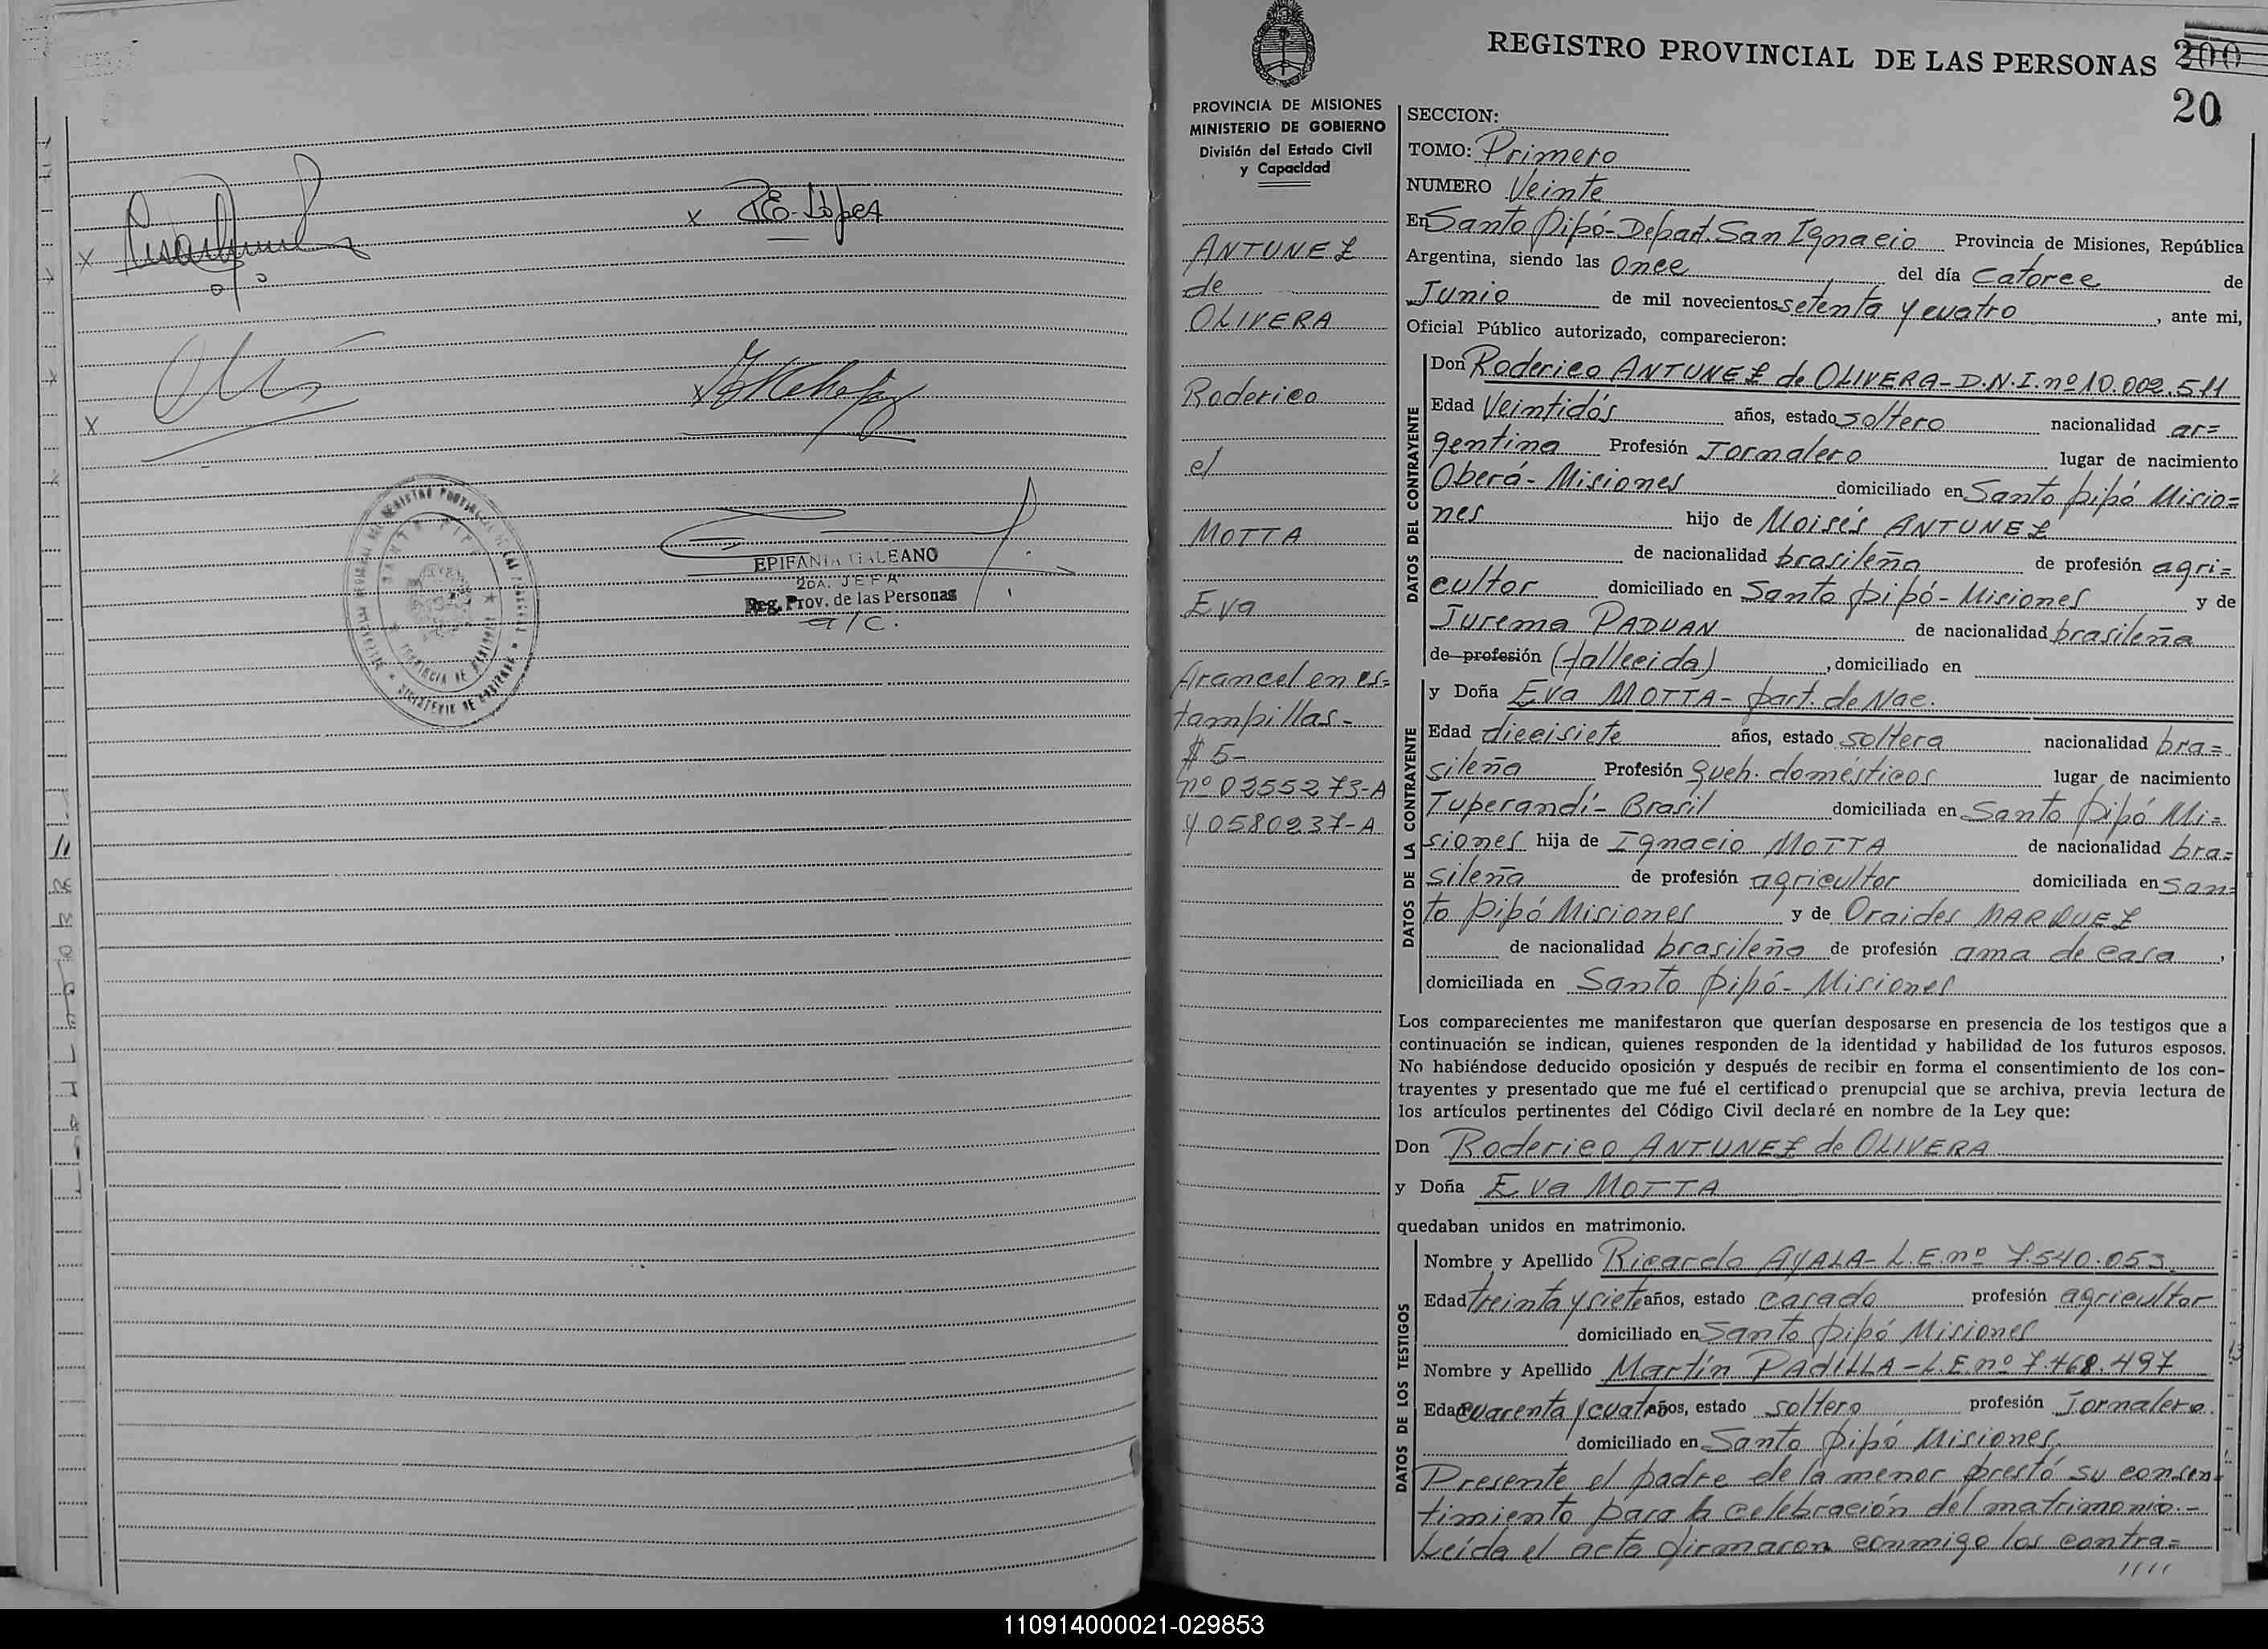 x
x R E. Lopez
x
x
EPIFANIA GALEANO
2DA. JEFA
Reg. Prov. de las Personas
a/c.
PROVINCIA DE MISIONES
MINISTERIO DE GOBIERNO
División del Estado Civil
y Capacidad
ANTUNEZ
de
OLIVERA
Roderico
el
MOTTA
Eva
Arancel en es=
tampillas-
$ 5-
nº 0255273-A
y 0580237-A
REGISTRO PROVINCIAL DE LAS PERSONAS 200
20
SECCION:
TOMO: Primero
NUMERO Veinte
En Santo Pipó-Depart. San Ignacio Provincia de Misiones, República
Argentina, siendo las Once del día Catorce de
Junio de mil novecientos setenta y cuatro, ante mi,
Oficial Público autorizado, comparecieron:
DATOS DEL CONTRAYENTE
Don Roderico ANTUNEZ de OLIVERA-D.N.I.nº 10.002.511
Edad Veintidós años, estado soltero nacionalidad ar=
gentina Profesión Jornalero lugar de nacimiento
Oberá-Misiones domiciliado en Santo Pipó Misio=
nes hijo de Moisés ANTUNEZ
de nacionalidad brasileña de profesión agri=
cultor domiciliado en Santo Pipó-Misiones y de
Jurema PADUAN de nacionalidad brasileña
de profesión (fallecida), domiciliado en
DATOS DE LA CONTRAYENTE
y Doña Eva MOTTA- part. de Nac.
Edad diecisiete años, estado soltera nacionalidad bra=
sileña Profesión Queh. domésticos lugar de nacimiento
Tuperandí-Brasil domiciliada en Santo Pipó Mi=
siones hija de Ignacio MOTTA de nacionalidad bra=
sileña de profesión agricultor domiciliada en San=
to Pipó Misiones y de Oraides MARQUEZ
de nacionalidad brasileña de profesión ama de casa,
domiciliada en Santo Pipó-Misiones
Los comparecientes me manifestaron que querían desposarse en presencia de los testigos que a
continuación se indican, quienes responden de la identidad y habilidad de los futuros esposos.
No habiéndose deducido oposición y después de recibir en forma el consentimiento de los con-
trayentes y presentado que me fué el certificado prenupcial que se archiva, previa lectura de
los artículos pertinentes del Código Civil declaré en nombre de la Ley que:
Don Roderico ANTUNEZ de OLIVERA
y Doña Eva MOTTA
quedaban unidos en matrimonio.
DATOS DE LOS TESTIGOS
Nombre y Apellido Ricardo AYALA-L.E.nº 7.540.053.
Edad treinta y siete años, estado casado profesión agricultor
domiciliado en Santo Pipó Misiones
Nombre y Apellido Martín PADILLA-L.E.nº 7.468.497
Edad cuarenta y cuatro años, estado soltero profesión Jornalero.
domiciliado en Santo Pipó Misiones.
Presente el padre de la menor prestó su consen=
timiento para la celebración del matrimonio.-
Leída el acta firmaron conmigo los contra=
////
110914000021-029853